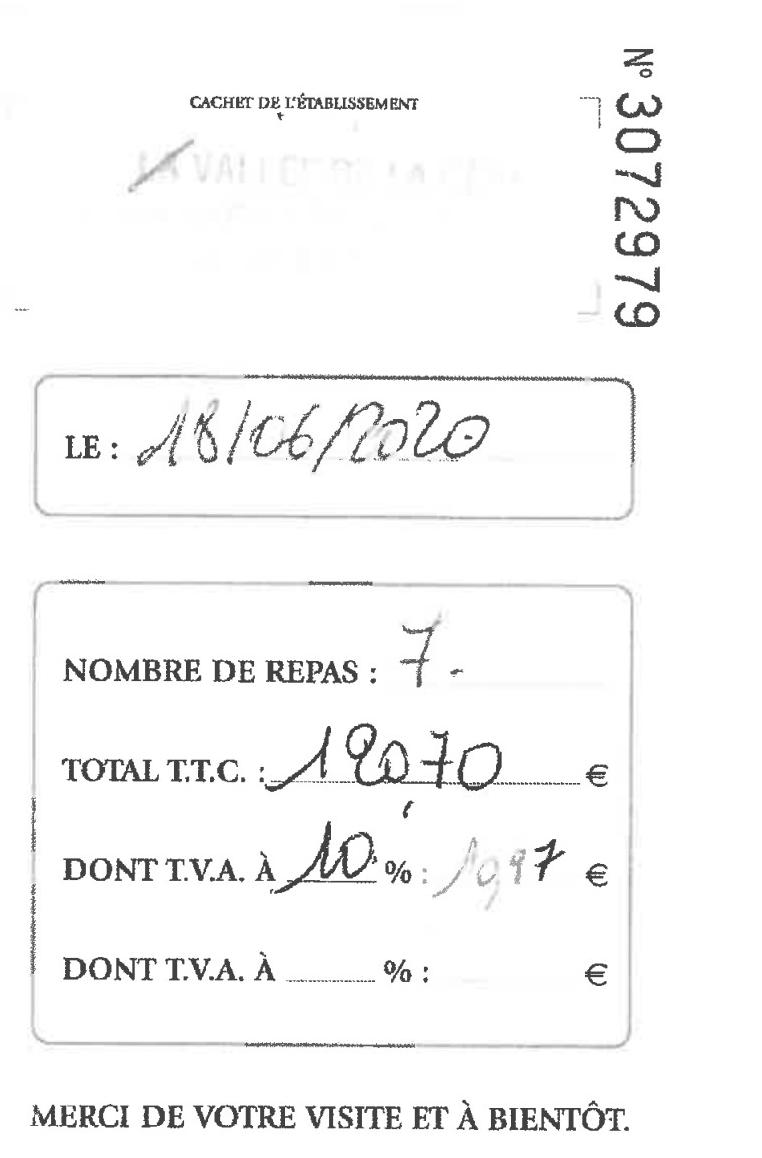 N° 3072979
CACHET DE L'ÉTABLISSEMENT
LA VALLEE DE LA
LE : 18/06/2020
NOMBRE DE REPAS : 7.
TOTAL T.T.C. : 120,70 €
DONT T.V.A. À 10 % : 10,97 €
DONT T.V.A. À % : €
MERCI DE VOTRE VISITE ET À BIENTÔT.